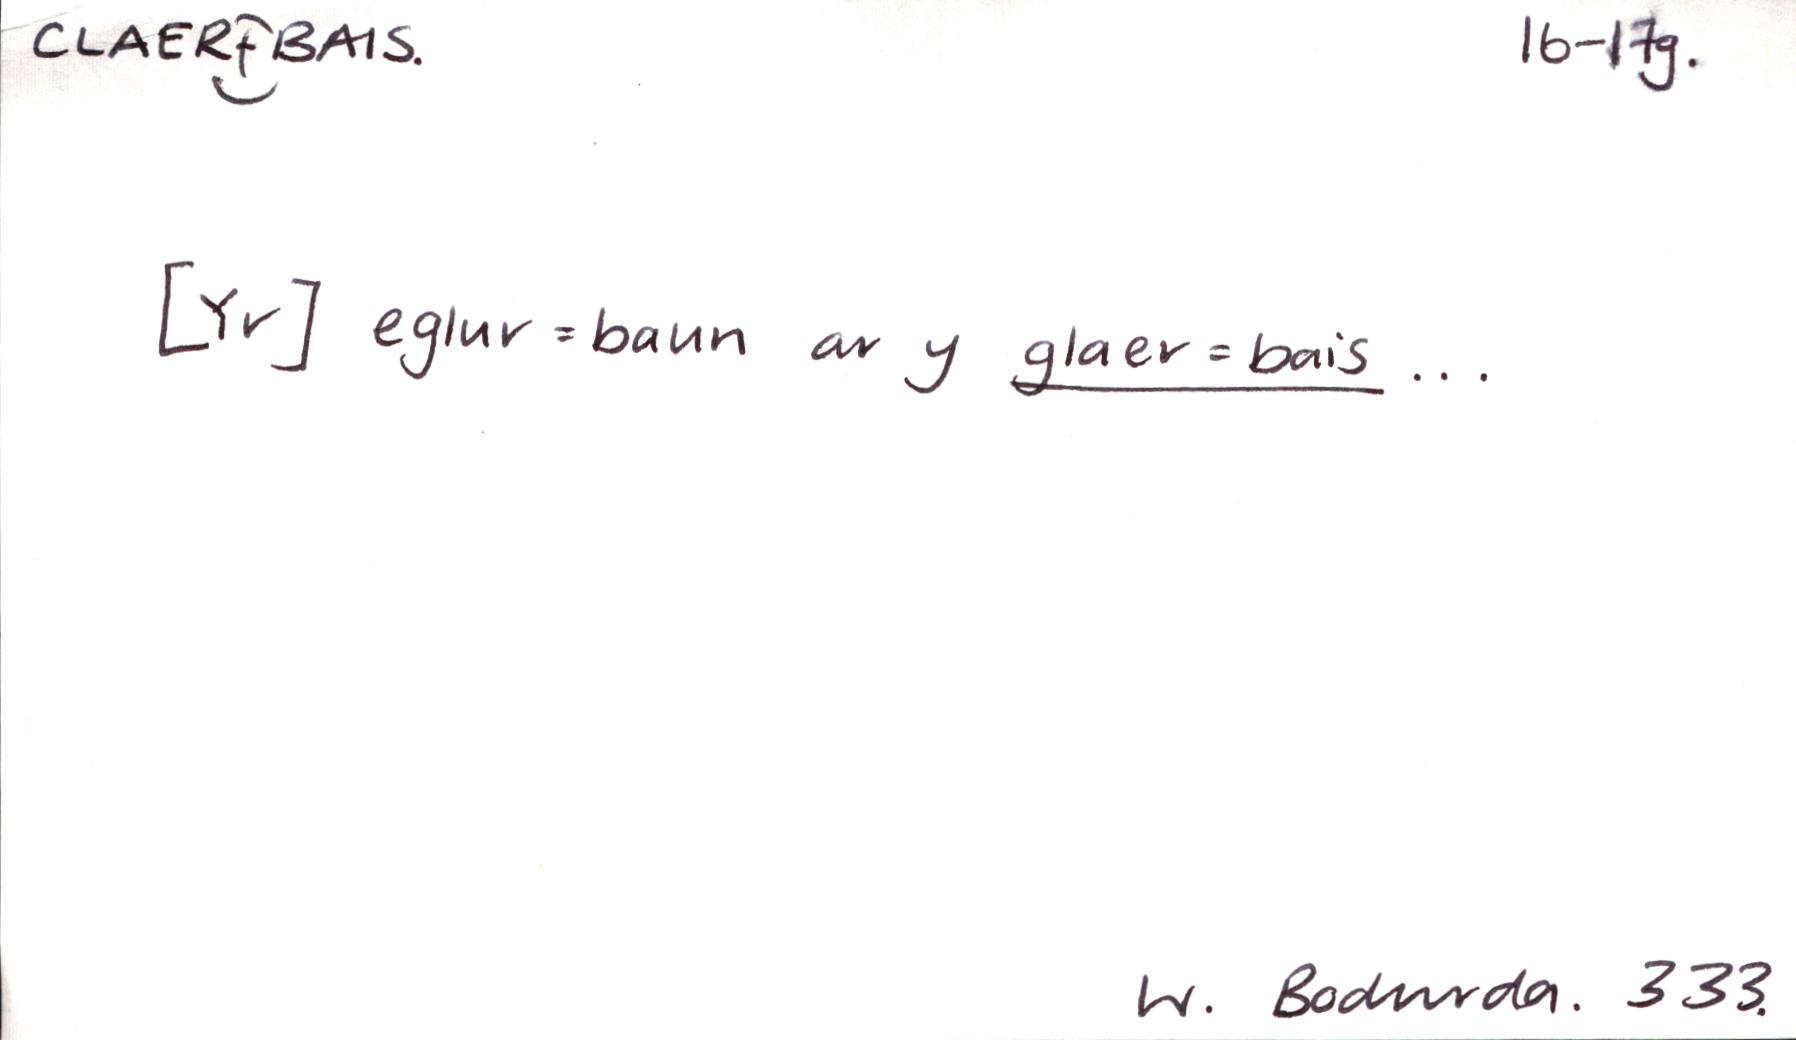 CLAER=BAIS. 16-17g.
[Yr] eglur=baun ar y glaer=bais ...
W. Bodwrda. 333.